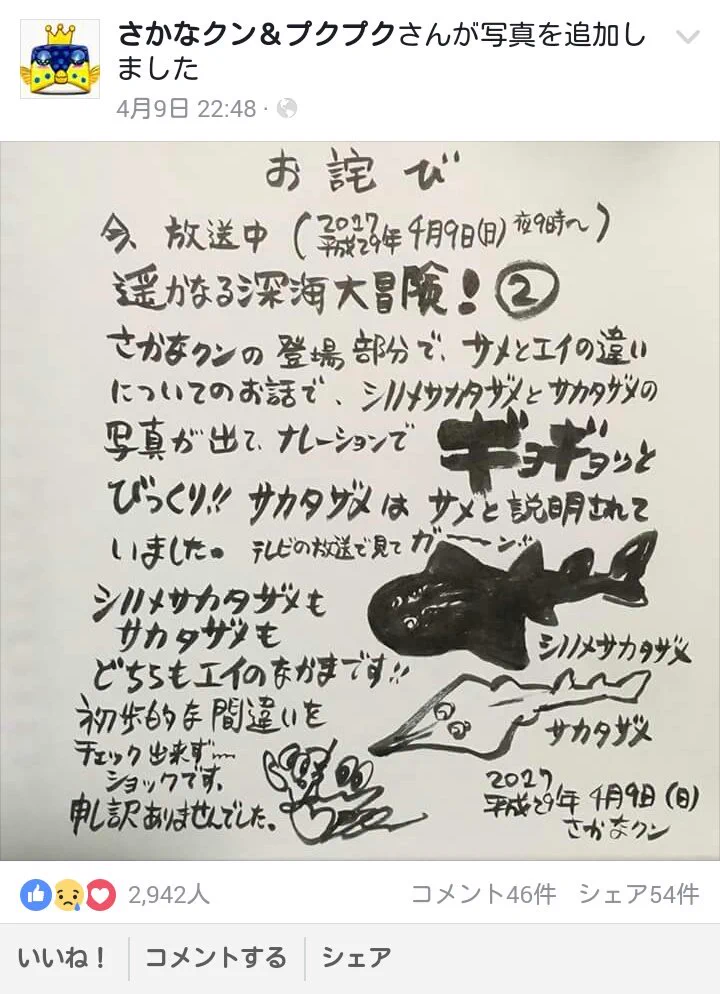 さかなクン＆プクプクさんが写真を追加し
ました
4月9日 22:48
お詫び
今、放送中（2017 平成29年 4月9日(日)夜9時〜）
遥かなる深海大冒険！②
さかなクンの登場部分で、サメとエイの違い
についてのお話で、シノノメサカタザメとサカタザメの
写真が出て、ナレーションでギョギョッと
びっくり!! サカタザメはサメと説明されて
いました。テレビの放送で見てガーーン!!
シノノメサカタザメも
サカタザメも
どちらもエイのなかまです!!
シノノメサカタザメ
初歩的な間違いを
サカタザメ
チェック出来ず…
ショックです。
申し訳ありませんでした。
2017
平成29年4月9日（日）
さかなクン
2,942人
コメント46件 シェア54件
いいね！ コメントする シェア